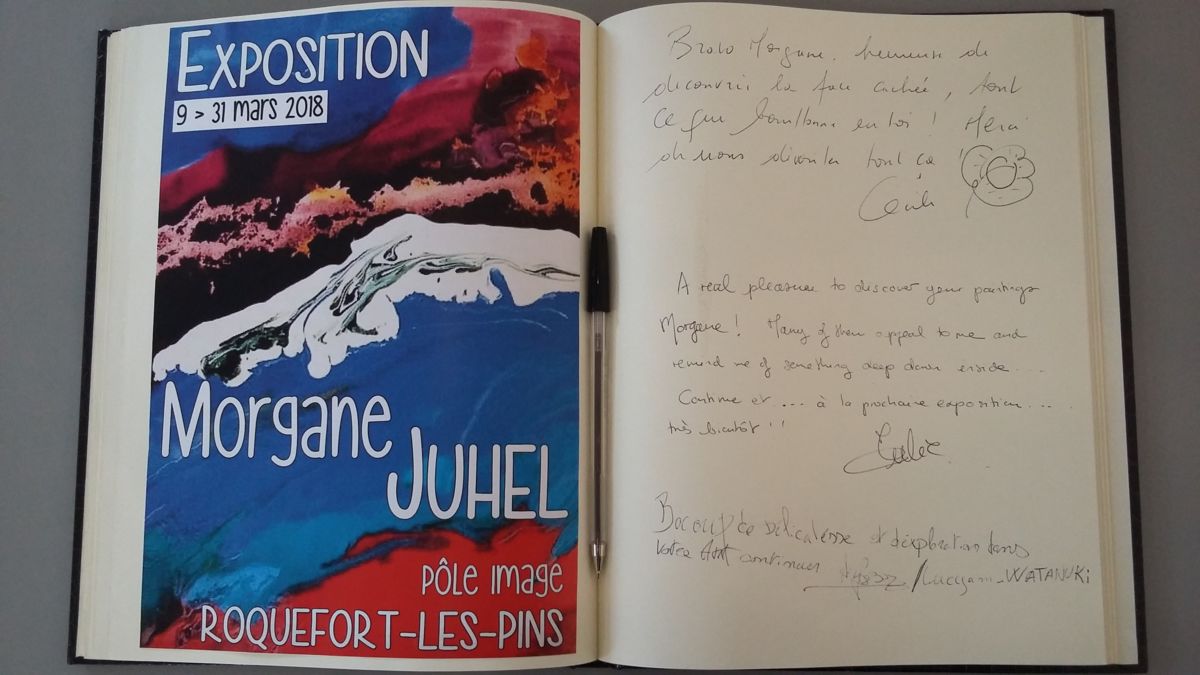 EXPOSITION
9 > 31 mars 2018
Morgane
JUHEL
PÔLE IMAGE
ROQUEFORT-LES-PINS
Bravo Morgane, heureuse de
découvrir la face cachée, tout
ce qui bouillonne en toi ! Merci
de nous dévoiler tout ça !
Cécile
A real pleasure to discover your paintings
Morgane ! Many of them appeal to me and
remind me of something deep down inside ....
Continue et ... à la prochaine exposition ...
très bientôt !!
Bocoup de délicatesse et d'exploration dans
votre Art continuer
WATANUKI